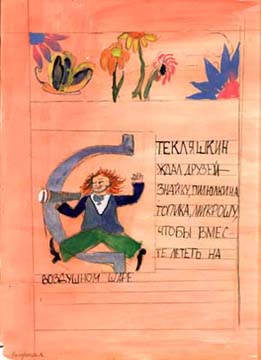 СТЕКЛЯШКИН
ЖДАЛ ДРУЗЕЙ—
ЗНАЙКУ, ПИЛЮЛКИНА,
ТОПИКА, МИКРОШУ,
ЧТОБЫ ВМЕС-
ТЕ ЛЕТЕТЬ НА
ВОЗДУШНОМ ШАРЕ